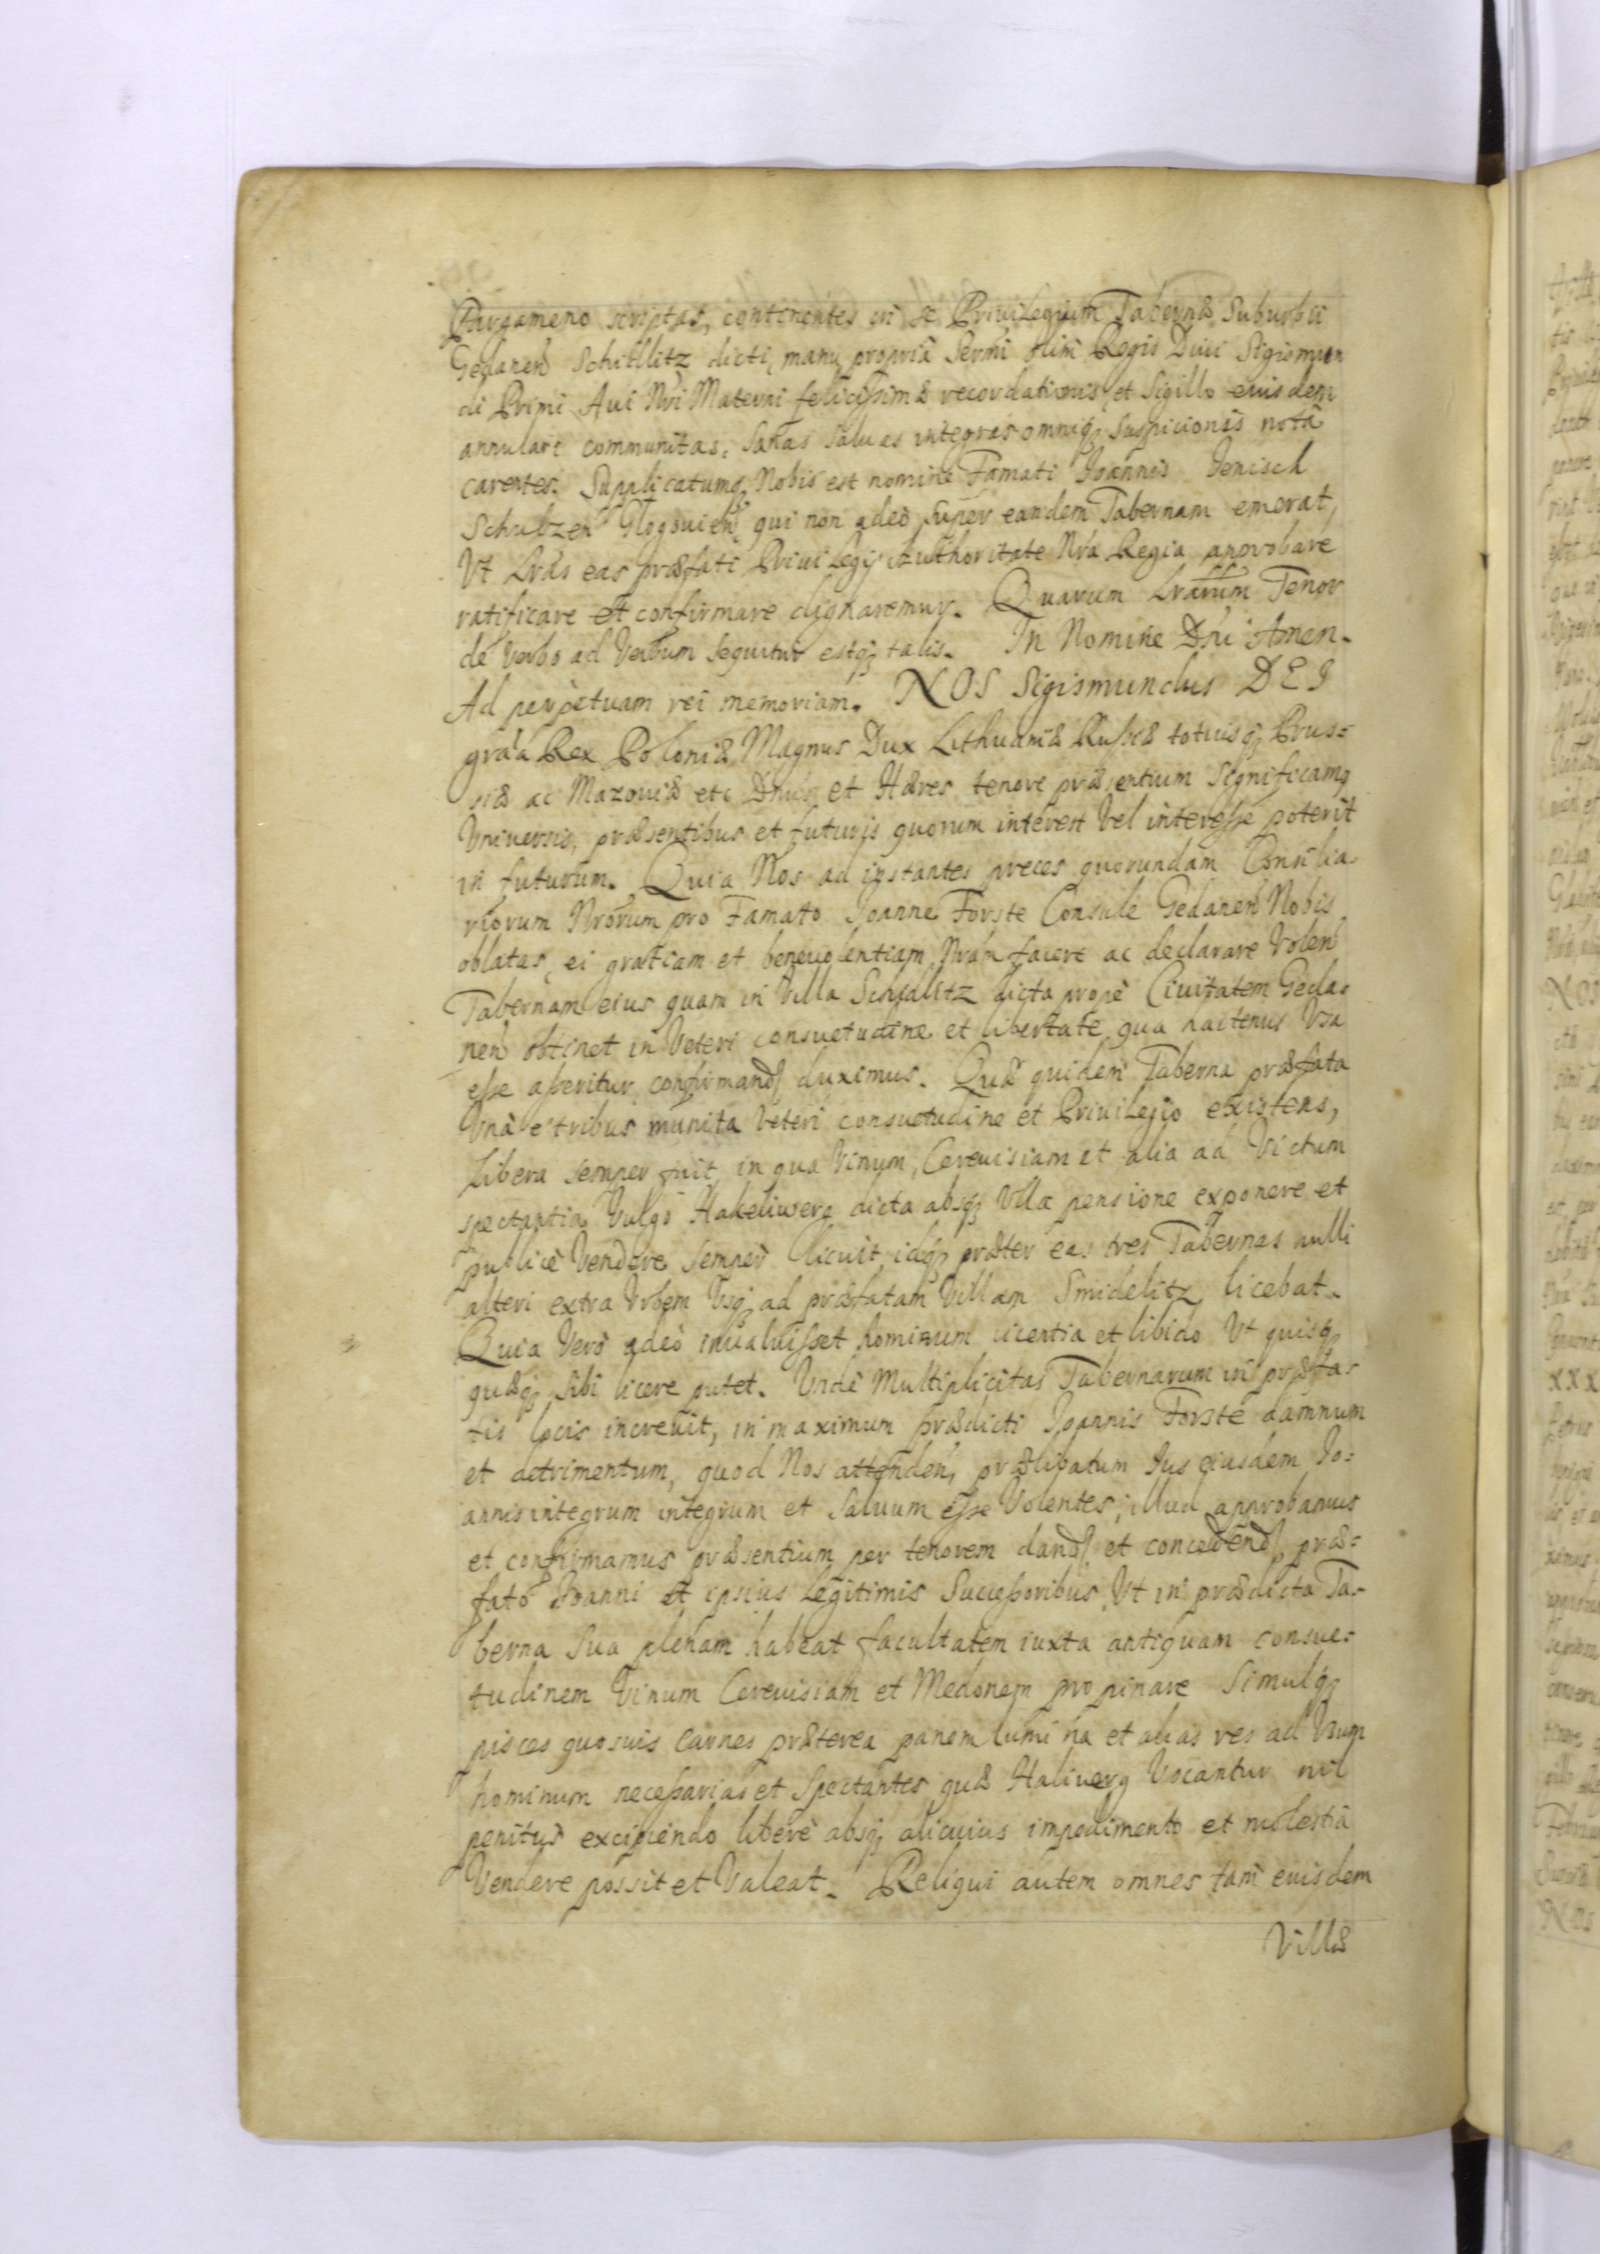 Pargameno scriptas, continentes in se Priuilegium Tabernæ Suburbii
Gedanen Schitllitz dicti, manu propriâ Sermi olim Regis Diui Sigismun
di Primi Aui Nri Materni felicissimæ recordationis, et Sigillo eiusdem
annulari communitas, sanas saluas integras omniq; suspicionis notâ
carentes. Supplicatumq; Nobis est nomine Famati Joannis Jenisch
Schultzen Glogouien, qui non adeò super eandem Tabernam emerat,
Vt Lras eas præfati Priuilegij authoritate Nrâ Regia approbare
ratificare et confirmare dignaremur. Quarum Lrarum Tenor
de verbo ad Verbum sequitur estq; talis. In Nomine Dni Amen.
Ad perpetuam rei memoriam. NOS Sigismundus DEI
graa Rex Poloniæ Magnus Dux Lithuaniæ Russiæ totiusq; Prus=
siæ ac Mazouiæ etc Dnus et Hæres tenore præsentium significamq
Vniuersis, præsentibus et futuris quorum interest Vel interesse poterit
in futurum. Quia Nos ad instantes preces quorundam Consilia-
riorum Nrorum pro Famato Joanne Forste Consule Gedanen Nobis
oblatas, ei gratiam et beneuolentiam Nram facere ac declarare Volen
Tabernam eius quam in Villa Schidlitz dicta propè Ciuitatem Geda-
nen obtinet in Veteri consuetudine et libertate qua hactenus Vsa
esse asseritur confirmand duximus. Quæ quidem Taberna præfata
Vnà e tribus munita Veteri consuetudine et Priuilegio existens,
Libera semper fuit, in qua Vinum, Cereuisiam et alia ad Victum
spectantia Vulgò Hakeliwerg dicta absq; Vlla pensione exponere et
publicè Vendere semper licuit, idq; præter eas tres Tabernas nulli
alteri extra Vrbem Vsq; ad præfatam Villam Smidelitz licebat.
Quia Verò adeò inualuisset hominum licentia et libido Vt quisq;
quæq; sibi licere putet. Vnde Multiplicitas Tabernarum in præfa-
tis locis increuit, in maximum prædicti Joannis Forste damnum
et detrimentum, quod Nos attenden, prælibatum Jus eiusdem Jo=
annis integrum integrum et saluum esse Volentes; illud approbamus
et confirmamus præsentium per tenorem dand et concedend præ=
fato Joanni et ipsius Legitimis Successoribus, Vt in prædicta Ta-
berna sua plenam habeat facultatem iuxta antiquam consue-
tudinem Vinum Cereuisiam et Medonem propinare Simulq;
pisces quosuis carnes præterea panem lumina et alias res ad Vsum
hominum necessarias et spectantes quæ Haliwerg Vocantur nil
penitus excipiendo liberè absq; alicuius impedimento et molestiâ
Vendere possit et Valeat. Reliqui autem omnes tam eiusdem
Villæ